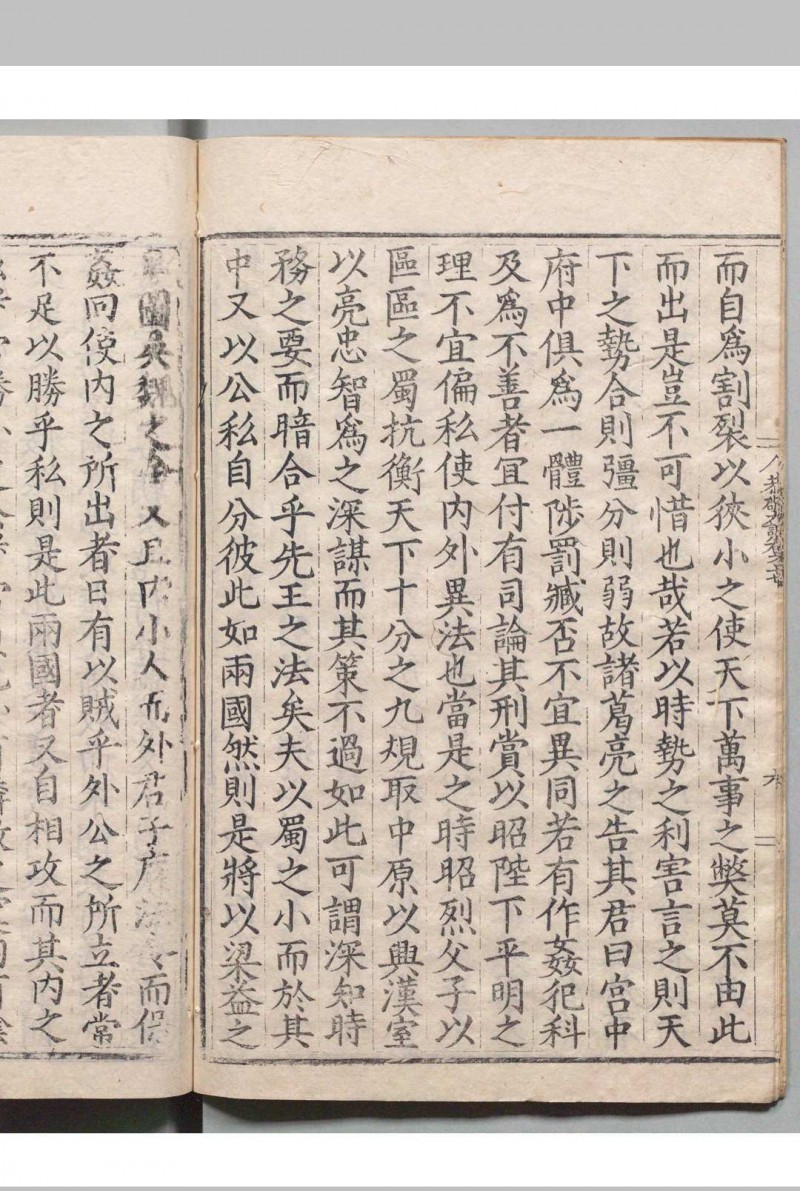 而自爲割裂以狹小之使天下萬事之獘莫不由此
而出是豈不可惜也哉若以時勢之利害言之則天
下之勢合則彊分則弱故諸葛亮之告其君曰宮中
府中俱爲一體陟罰臧否不宜異同若有作姦犯科
及爲不善者宜付有司論其刑賞以昭陛下平明之
理不宜偏私使内外異法也當是之時昭烈父子以
區區之蜀抗衡天下十分之九規取中原以興漢室
以亮忠智爲之深謀而其策不過如此可謂深知時
務之要而暗合乎先王之法矣夫以蜀之小而於其
中又以公私自分彼此如兩國然則是將以梁益之
圖吳魏之全又且内小人而外君子廢法令而保
姦回使内之所出者日有以賊乎外公之所立者常
不足以勝乎私則是此兩國者又自相攻而其内之